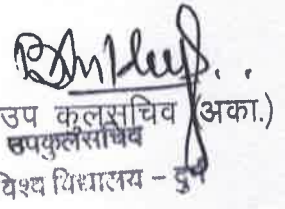 उप कुलसचिव (अका.)
उपकुलसचिव
विश्व विद्यालय – दुर्ग